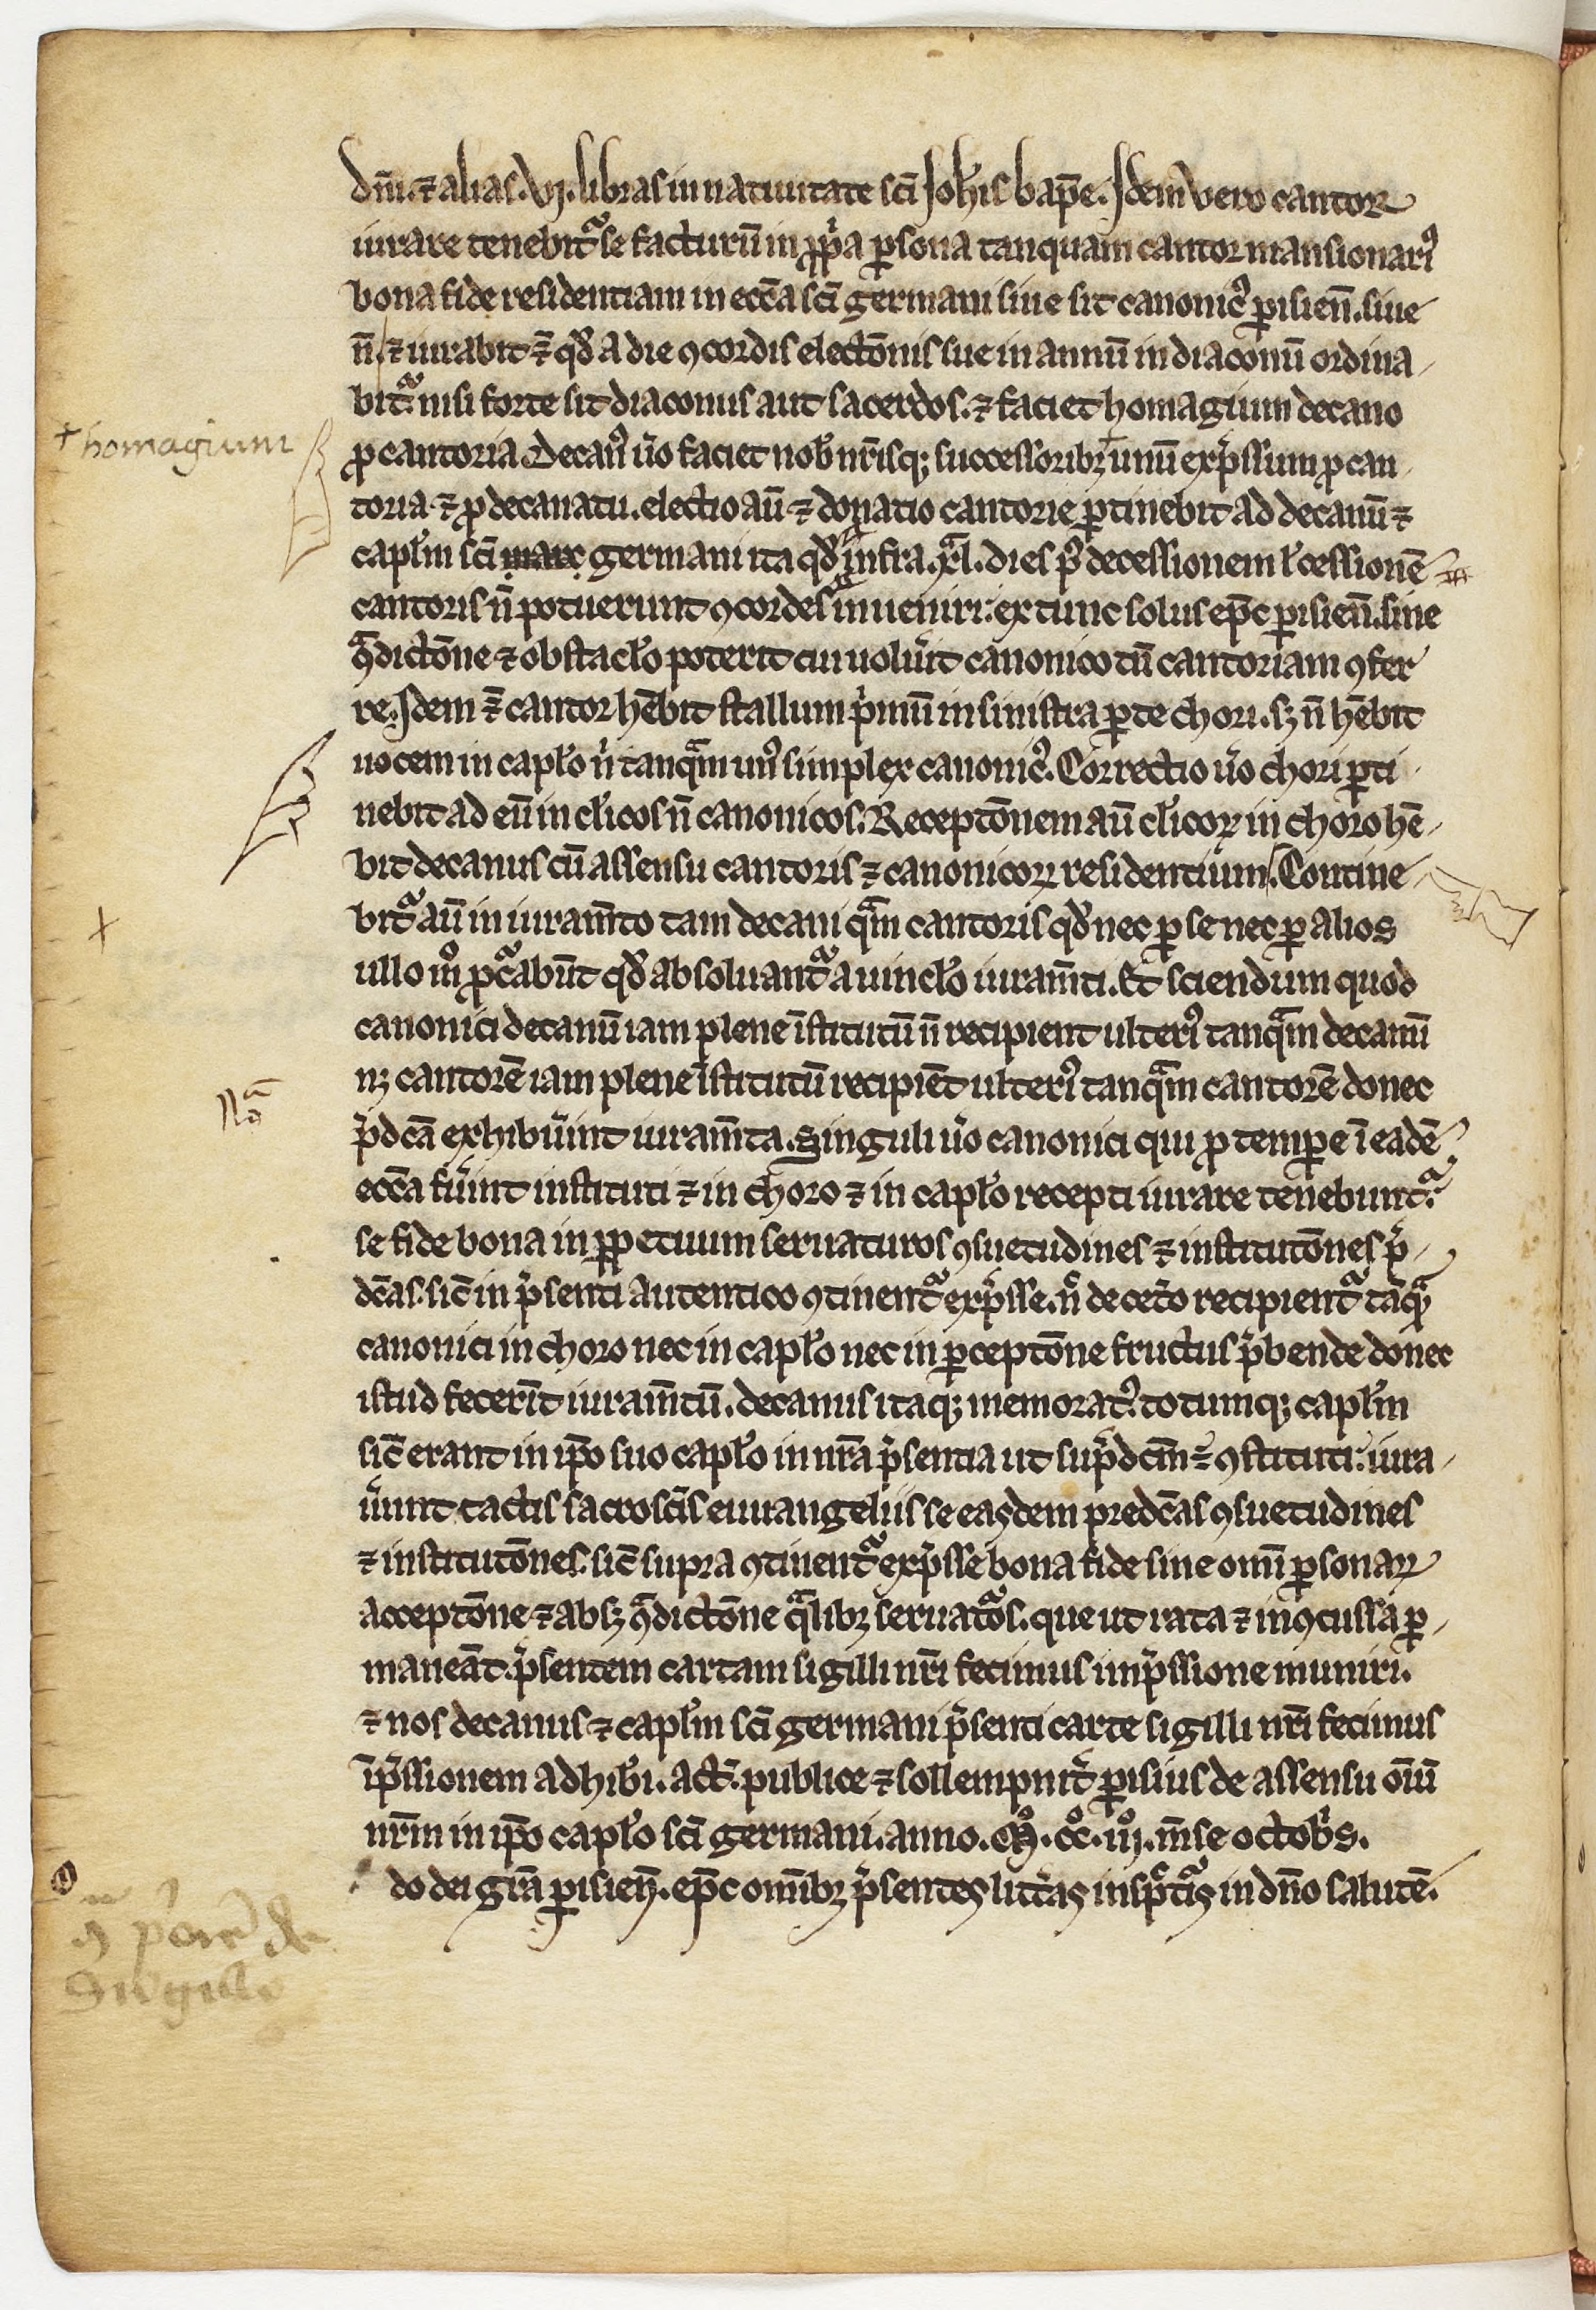 dñi. ⁊ alias. vj. libras in natiuitate sc̄i Joh̄is bap̄e. Jdem vero cantor
iurare tenebit᷑ se facturū in ꝓp̍a ꝑsona tanquam cantor mansionariꝰ
bona fide residentiam in ecc̄a sc̄i germani siue sit canonicꝰ ꝑisieñ. siue
ñ. ⁊ iurabit ⁊̄ qd̕ a die ꝯcordis electōnis sue in annū in diaconū ordina-
bit᷑ nisi forte sit diaconus aut sacerdos. ⁊ faciet homagium decano
† homagium
ꝓ cantoria. Decanꝰ ùo faciet nob̕ nr̄isqꝫ successoribꝫ unū exp̍ssium ꝓ can-
toria. ⁊ ꝓ decanatu. electio aū ⁊ donatio cantorie ꝑtinebit ad decanū ⁊
capl̕m sc̄i marc germani ita qd̕ infra. xl. dies pꝰ decessionem l̕ cessionē
cantoris ñ potuerunt ꝯcordes inueniri. ex tunc solus ep̄c ꝑisieñ. sine
ꝯᵃdictōne ⁊ obstacl̕o poterit cui uolu̍it canonico tū cantoriam ꝯfer
re. Jdem ⁊̄ cantor hēbit stallum p̍mū in sinistra ꝑte chori. sꝫ ñ hēbit
uocem in capl̕o n̍ tanqᵃm unꝰ simplex canonicꝰ. Correctio ùo chori ꝑti-
nebit ad eū in cl̕icos ñ canonicos. Receptōnem aū cl̕icoꝝ in choro hē-
bit decanus cū assensu cantoris ⁊ canonicoꝝ residentium. Contine-
bit᷑ aū in iuram̄to tam decani qᵃm cantoris qd̕ nec ꝑ se nec ꝑ alios
ullo mͦ ꝓcᵃbūt qd̕ absoluant᷑ a uincl̕o iuram̄ti. Et sciendum quod
canonici decanū iam plene īstitutū ñ recipient ulteriꝰ tanqᵃm decanū
nꝫ cantorē iam plene īstitutū recipiēt ulteriꝰ tanqᵃm cantorē donec
Noᵃ
p̍dc̄a exhibu̍int iuram̄ta. Singuli ùo canonici qui ꝓ tempe ī eadē
ecc̄a fu̍int instituti ⁊ in choro ⁊ in capl̕o recepti iurare tenebunt᷑
se fide bona in ꝑpetuum seruaturos ꝯsuetudines ⁊ institutōnes p̍-
dc̄as. sic̄ in p̍senti autentico ꝯtinent᷑ exp̍sse. n̍ de cet̕o recipient᷑ tāqᵃ
canonici in choro nec in capl̕o nec in ꝑceptōne fructus p̍bende donec
istud fecerīt iuram̄tū. decanus itaqꝫ memoratꝰ. totumqꝫ capl̕m
sic̄ erant in ip̄o suo capl̕o in nr̄a p̍sentia ut sup̍dcm̄ ⁊̄ ꝯstituti. iura-
u̍unt tactis sacrosc̄is euuangeliis se easdem predc̄as ꝯsuetudines
⁊ institutōnes. sic̄ supra ꝯtinent᷑ exp̍sse bona fide sine omī ꝑsonaꝝ
acceptōne ⁊ absꝫ ꝯᵃdictōne qᵃlibꝫ seruatᵒs. que ut rata ⁊ inꝯcussa ꝑ-
maneāt. p̍sentem cartam sigilli nr̄i fecimus imp̍ssione muniri.
⁊ nos decanus ⁊ capl̕m sc̄i germani p̍senti carte sigilli nr̄i fecimus
īp̍ssionem adhib̕i. act̄. publice ⁊ sollempnit̕ ꝑisius de assensu oīū
nr̄m in ip̄o capl̕o sc̄i germani. anno. Mͦ. ccͦ. iijͦ. m̄se octob̕s.
do dei gr̄a ꝑisieñ. ep̄c omībꝫ p̍sentes litt̕as insp̄ct᷑is in dño salutē.